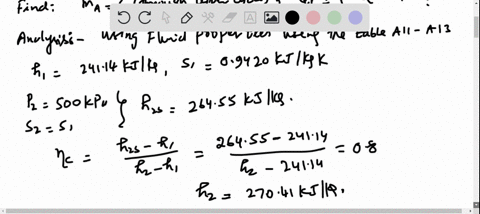 Find: ṁA =
Analysis:- Using Fluid properties using the table A11 - A13
h1 = 241.14 KJ/kg, S1 = 0.9420 KJ/kgK
P2 = 500 kPa } h2s = 264.55 KJ/kg.
S2 = S1
ηc = h2s - h1 / h2 - h1 = 264.55 - 241.14 / h2 - 241.14 = 0.8
h2 = 270.41 KJ/kg.